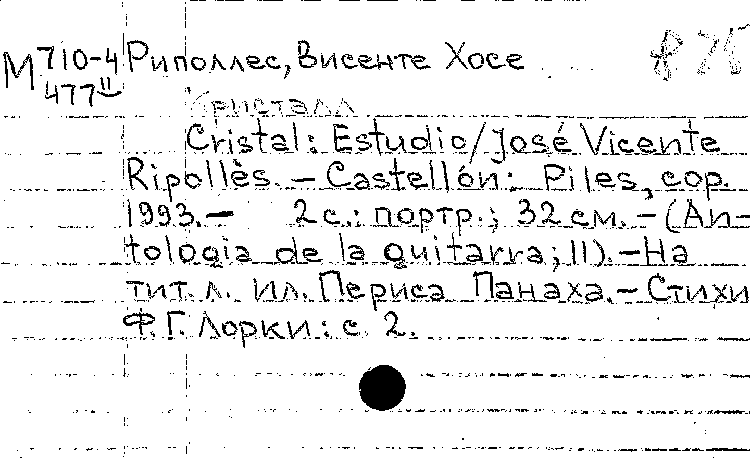 М 710-4 Риполлес, Висенте Хосе
477 II
Кристалл
Cristal: Estudio/José Vicente
Ripollès. — Castellón: Piles, cop.
1993. — 2 с.: портр.; 32 см. — (An-
tologia de la guitarra; II). — На
тит. л. ил. Периса Панаха. — Стихи
Ф. Г. Лорки: с. 2.